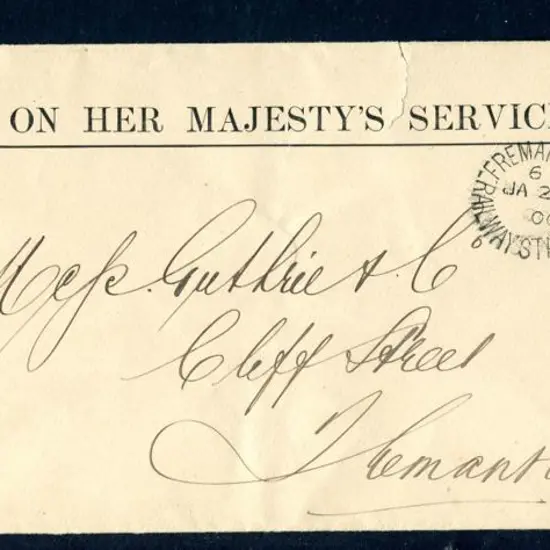 ON HER MAJESTY'S SERVIC
FREMAN
6
JA 2
0
RAILWAY STN
Mess. Guthrie & C
Cliff Street
Fremant